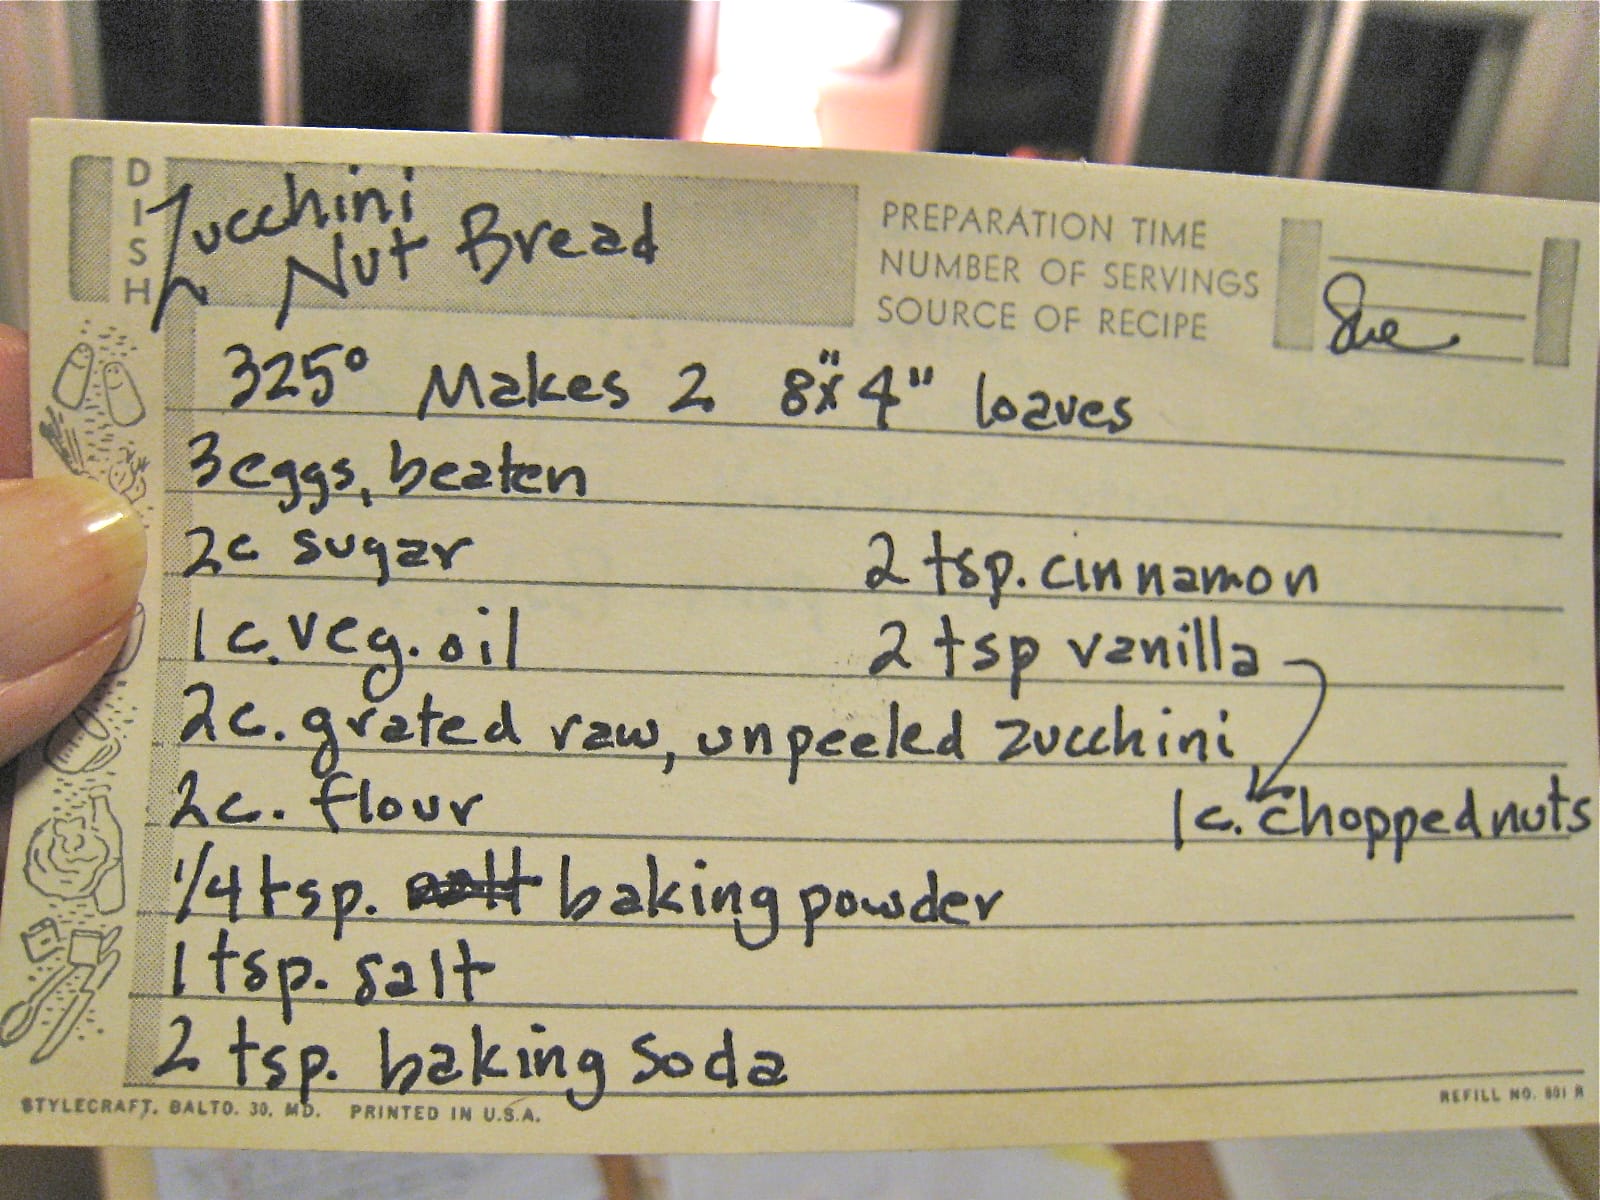 DISH
Zucchini
Nut Bread
PREPARATION TIME
NUMBER OF SERVINGS
SOURCE OF RECIPE
Sue
325° Makes 2 8"x4" loaves
3 eggs, beaten
2c sugar
2 tsp. cinnamon
1 c. veg. oil
2 tsp vanilla
2c. grated raw, unpeeled zucchini
2c. flour
1 c. chopped nuts
1/4 tsp. salt baking powder
1 tsp. salt
2 tsp. baking soda
STYLECRAFT, BALTO. 30, MD. PRINTED IN U.S.A.
REFILL NO. 801 R